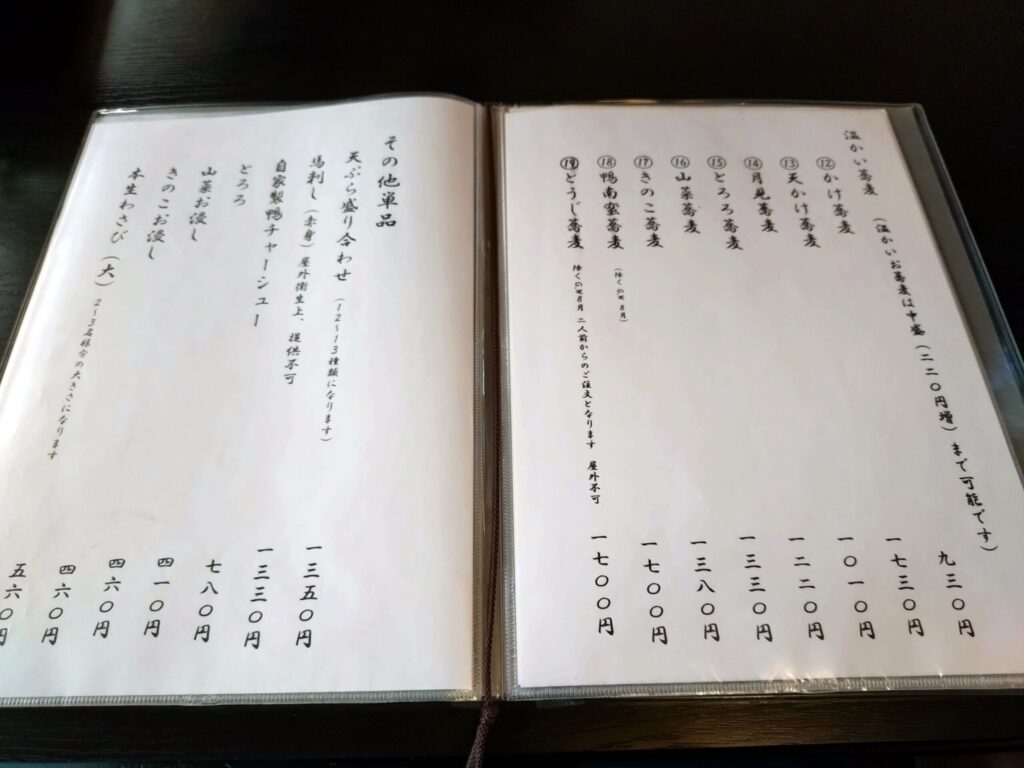 温かい蕎麦 (温かいお蕎麦は中盛(二二〇円増)まで可能です)
⑫かけ蕎麦 九三〇円
⑬天かけ蕎麦 一七三〇円
⑭月見蕎麦 一〇一〇円
⑮とろろ蕎麦 一二二〇円
⑯山菜蕎麦 一三三〇円
⑰きのこ蕎麦 一三八〇円
⑱鴨南蛮蕎麦 (除くGW 8月) 一七〇〇円
⑲とうじ蕎麦 除くGW8月 二人前からのご注文となります 屋外不可 一七〇〇円
その他単品
天ぷら盛り合わせ (12~13種類になります) 一三五〇円
馬刺し(赤身) 屋外衛生上、提供不可 一三三〇円
自家製鴨チャーシュー 七八〇円
とろろ 四一〇円
山菜お浸し 四六〇円
きのこお浸し 四六〇円
本生わさび(大) 2~3名様分の大きさになります 五六〇円